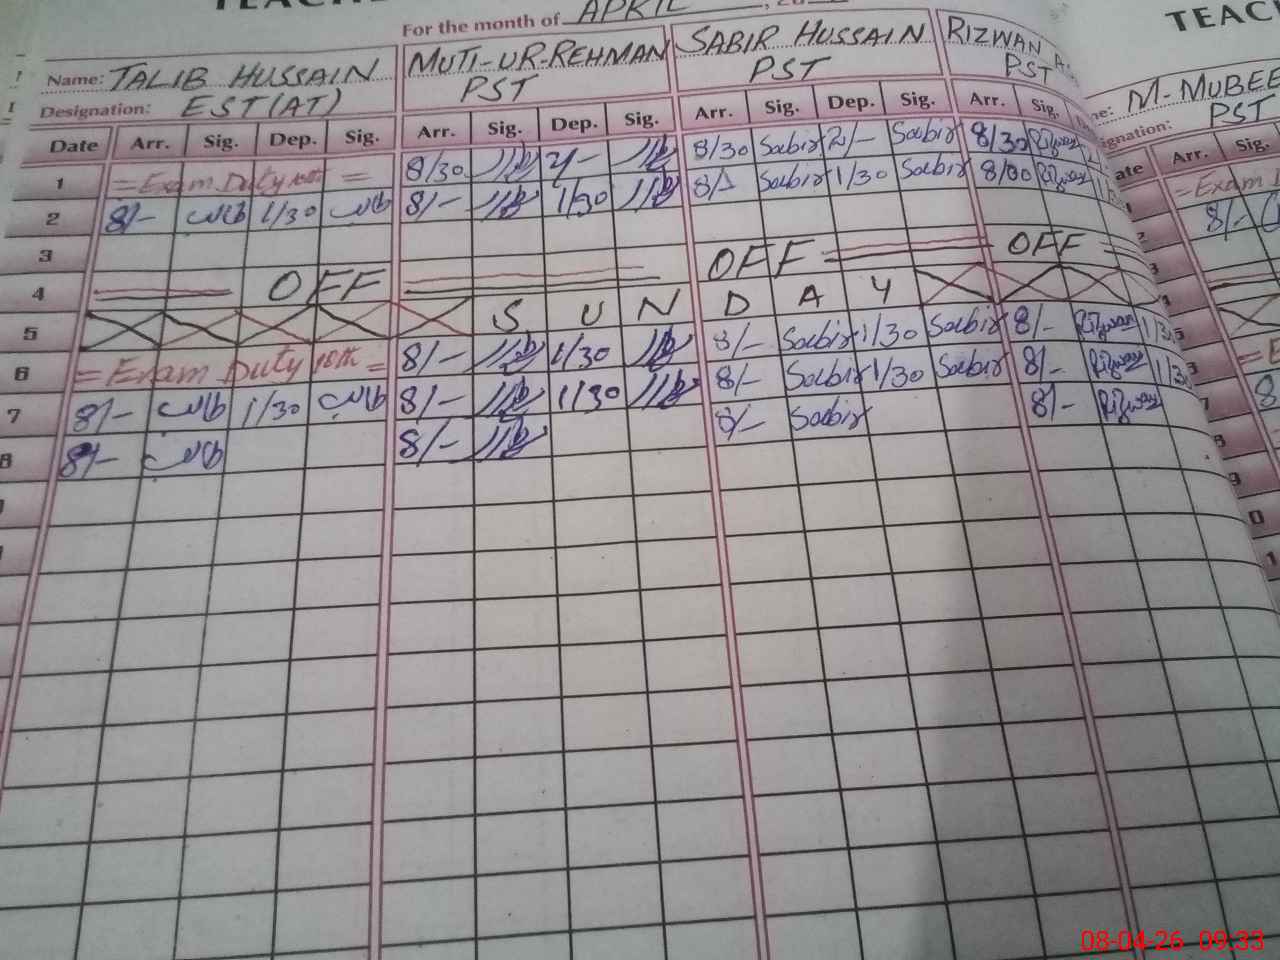 TEACHE
For the month of APRIL, 20
TEAC
Name: TALIB HUSSAIN MUTI-UR-REHMAN SABIR HUSSAIN RIZWAN A
Designation: EST(AT) PST PST PST
ne: M-MUBEE
ignation: PST
Date Arr. Sig. Dep. Sig. Arr. Sig. Dep. Sig. Arr. Sig. Dep. Sig. Arr. Sig.
ate Arr. Sig.
1 = Exam Duty 10th = 8/30 2/- 8/30 Sabir 2/- Sabir 8/30 Rizwan
= Exam
2 8/- طالب 1/30 طالب 8/- 1/30 8/- Sabir 1/30 Sabir 8/00 Rizwan
8/-
3
4 OFF OFF OFF
5 S U N D A Y
6 = Exam Duty 10th = 8/- 1/30 8/- Sabir 1/30 Sabir 8/- Rizwan 1/3
7 8/- طالب 1/30 طالب 8/- 1/30 8/- Sabir 1/30 Sabir 8/- Rizwan 1/30
8 8/- طالب 8/- 8/- Sabir 8/- Rizwan
08-04-26 09:33